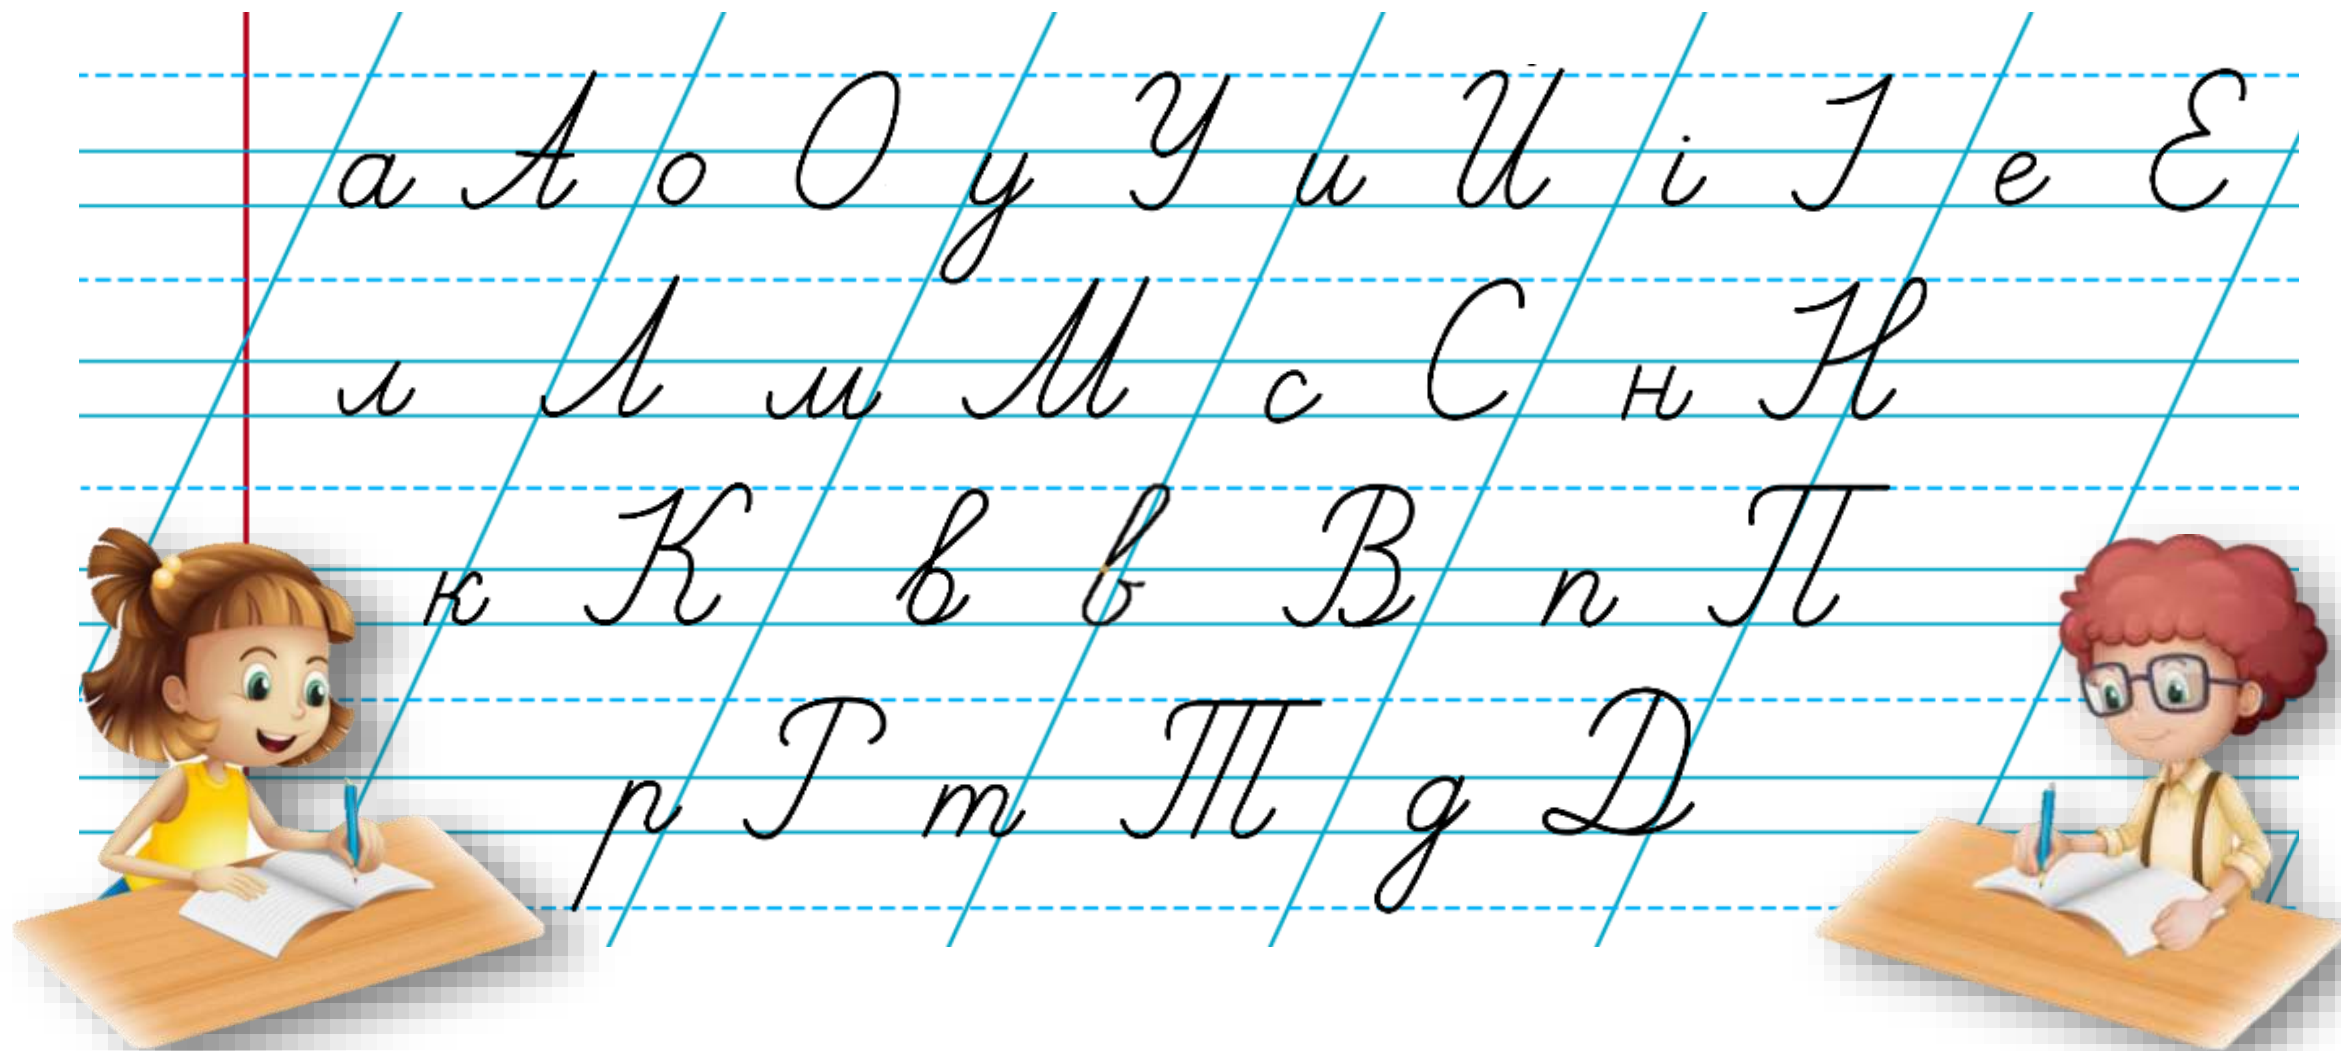 а А о О у У и И і І е Е
л Л м М с С н Н
к К в в В п П
р Р т Т д Д